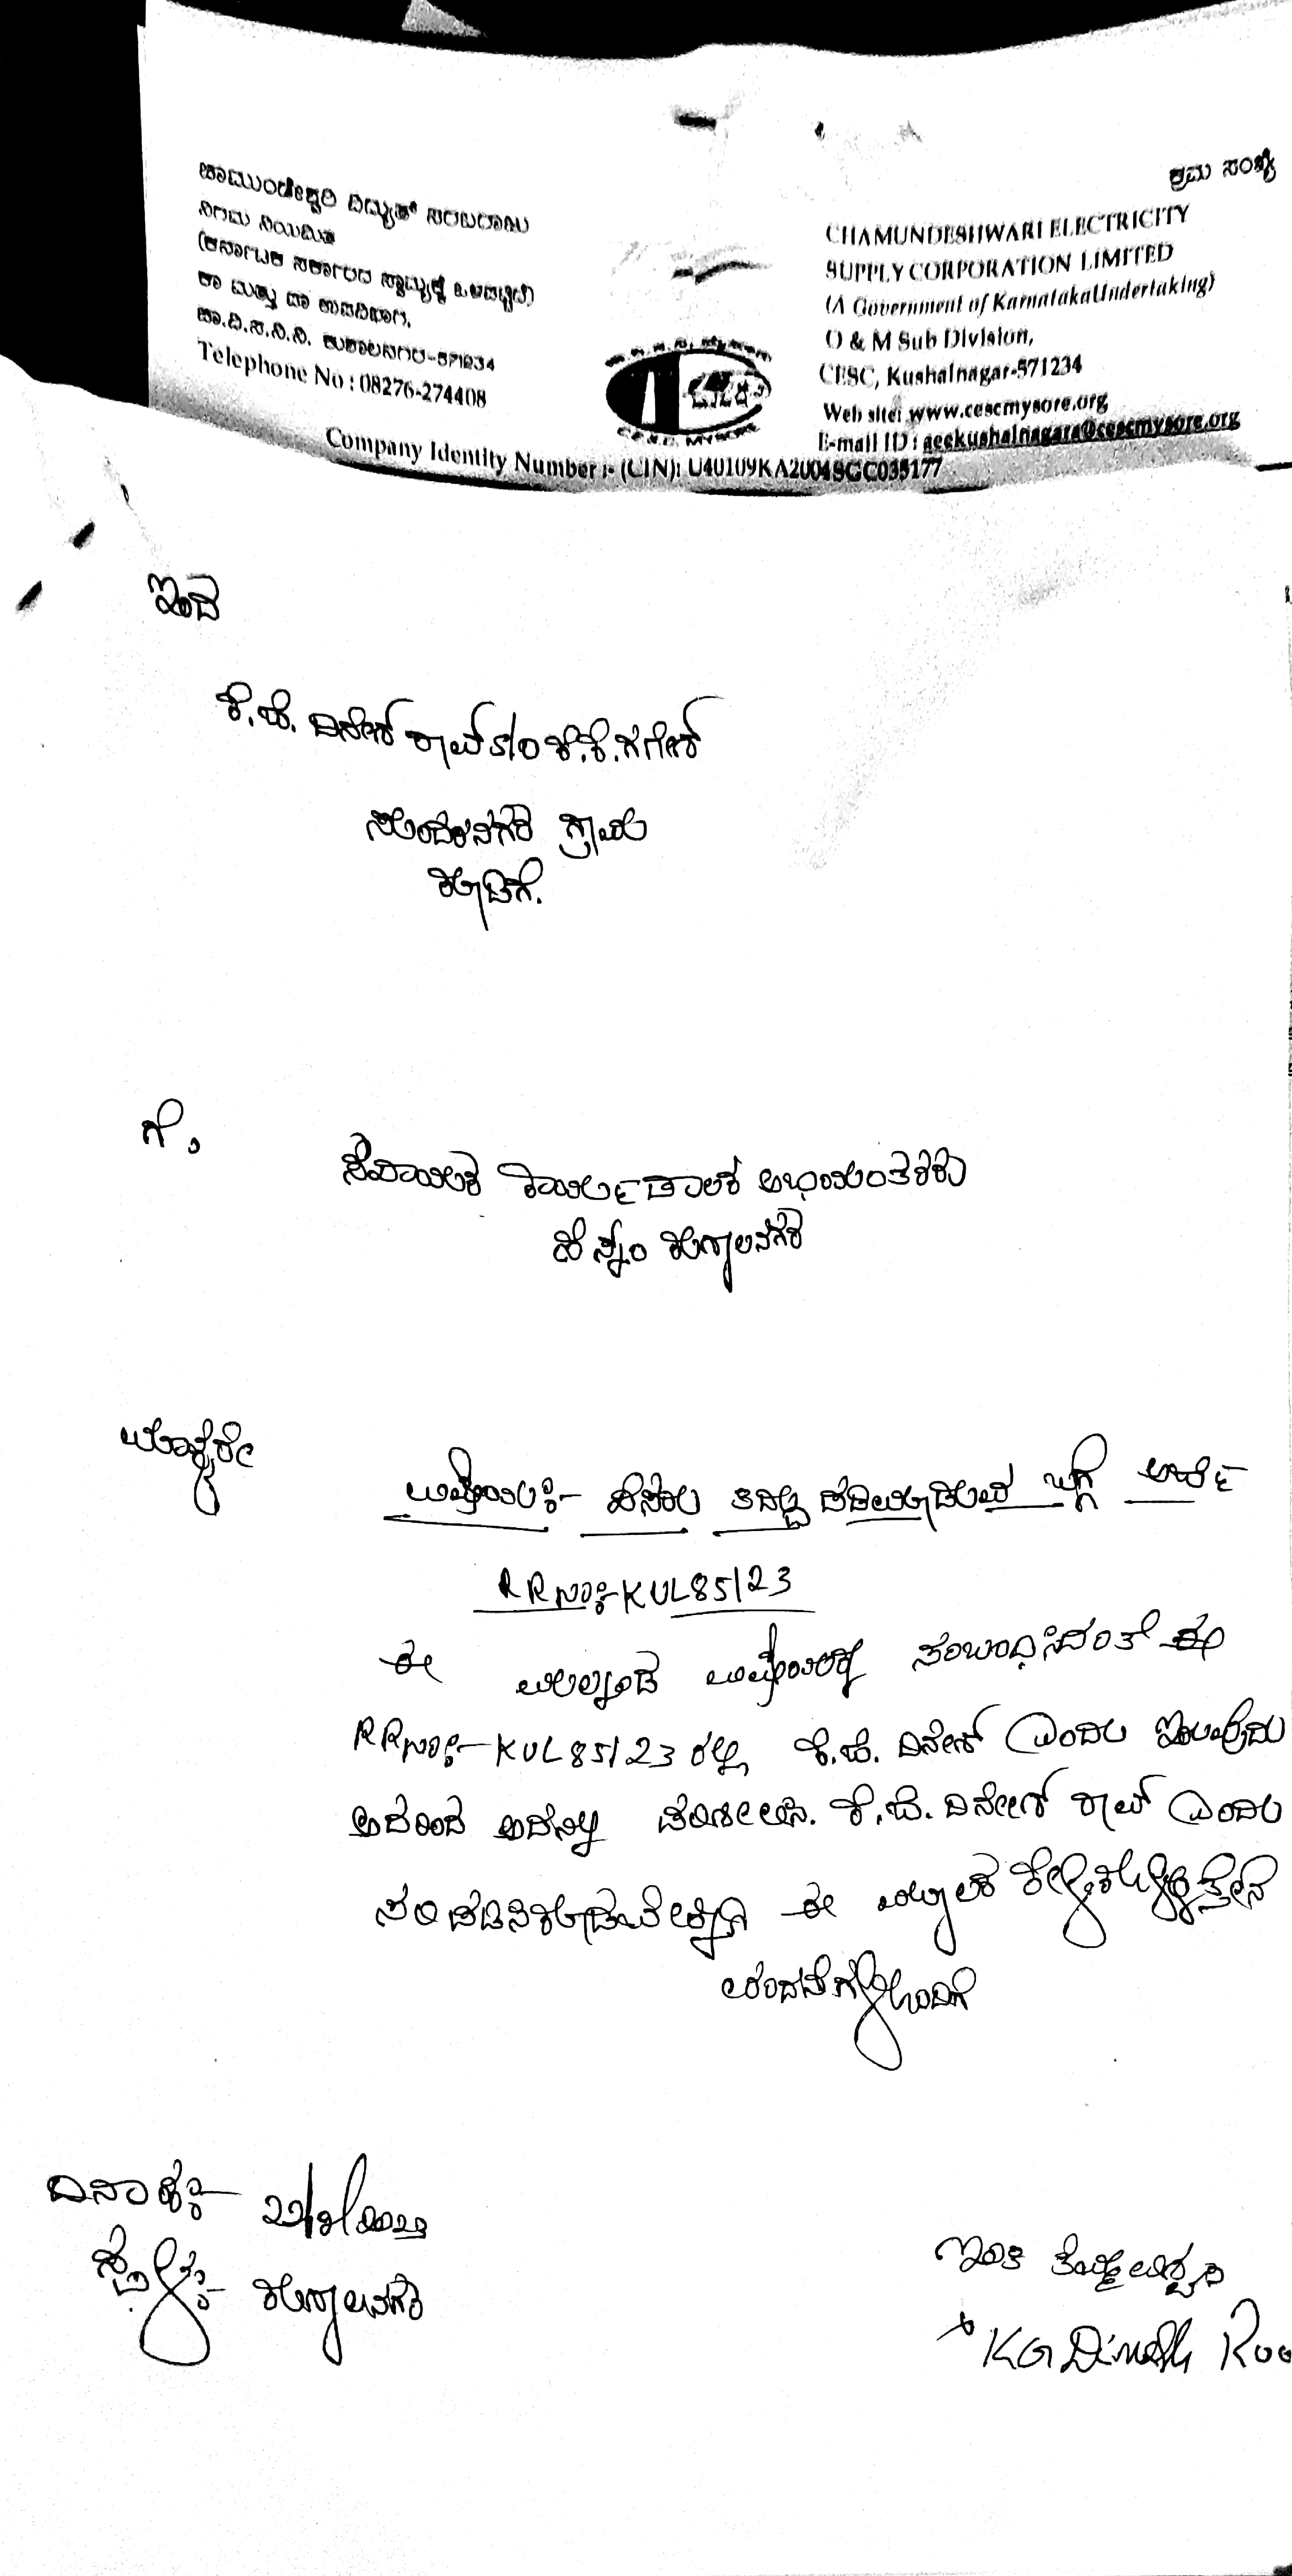 ಕ್ರಮ ಸಂಖ್ಯೆ
ಚಾಮುಂಡೇಶ್ವರಿ ವಿದ್ಯುತ್ ಸರಬರಾಜು
ನಿಗಮ ನಿಯಮಿತ
(ಕರ್ನಾಟಕ ಸರ್ಕಾರದ ಸ್ವಾಮ್ಯಕ್ಕೆ ಒಳಪಟ್ಟಿದೆ)
ಕಾ ಮತ್ತು ಪಾ ಉಪವಿಭಾಗ,
ಚಾ.ವಿ.ಸ.ನಿ.ನಿ. ಕುಶಾಲನಗರ-571234
Telephone No : 08276-274408
CHAMUNDESHWARI ELECTRICITY
SUPPLY CORPORATION LIMITED
(A Government of KarnatakaUndertaking)
O & M Sub Division,
CESC, Kushalnagar-571234
Web site: www.cescmysore.org
E-mail ID : aeekushalnagara@cescmysore.org
C.E.S.C. MYSORE
Company Identity Number :- (CIN): U40109KA2004SGC035177
ಇಂದ
ಕೆ.ಜಿ. ದಿನೇಶ್ ರಾವ್ S/o ಕೆ.ಕೆ. ಗಣೇಶ್
ಸುಂದರನಗರ ಗ್ರಾಮ
ಕೂಡಿಗೆ.
ಗೆ,
ಸಹಾಯಕ ಕಾರ್ಯಪಾಲಕ ಅಭಿಯಂತರರು
ಕುಶಾಲನಗರ
ಮಾನ್ಯರೇ
ವಿಷಯ:- ಹೆಸರು ತಿದ್ದುಪಡಿಮಾಡುವ ಬಗ್ಗೆ ಅರ್ಜಿ
RR ನಂ:- KUL85123
ಈ ಮೇಲ್ಕಂಡ ವಿಷಯಕ್ಕೆ ಸಂಬಂಧಿಸಿದಂತೆ
RR ನಂ:- KUL85123 ರಲ್ಲಿ ಕೆ.ಜಿ. ದಿನೇಶ್ ಎಂದು ಇರುವುದು
ಆದರಿಂದ ಅದನ್ನು ಕೆ.ಜಿ. ದಿನೇಶ್ ರಾವ್ ಎಂದು
ಸರಿಪಡಿಸಿಕೊಡಬೇಕಾಗಿ ಈ ಮೂಲಕ ಕೇಳಿಕೊಳ್ಳುತ್ತೇನೆ
ವಂದನೆಗಳೊಂದಿಗೆ
ದಿನಾಂಕ:-
ಸ್ಥಳ:- ಕುಶಾಲನಗರ
ಇಂತಿ ತಮ್ಮ ವಿಶ್ವಾಸಿ
KG Dinesh Roo